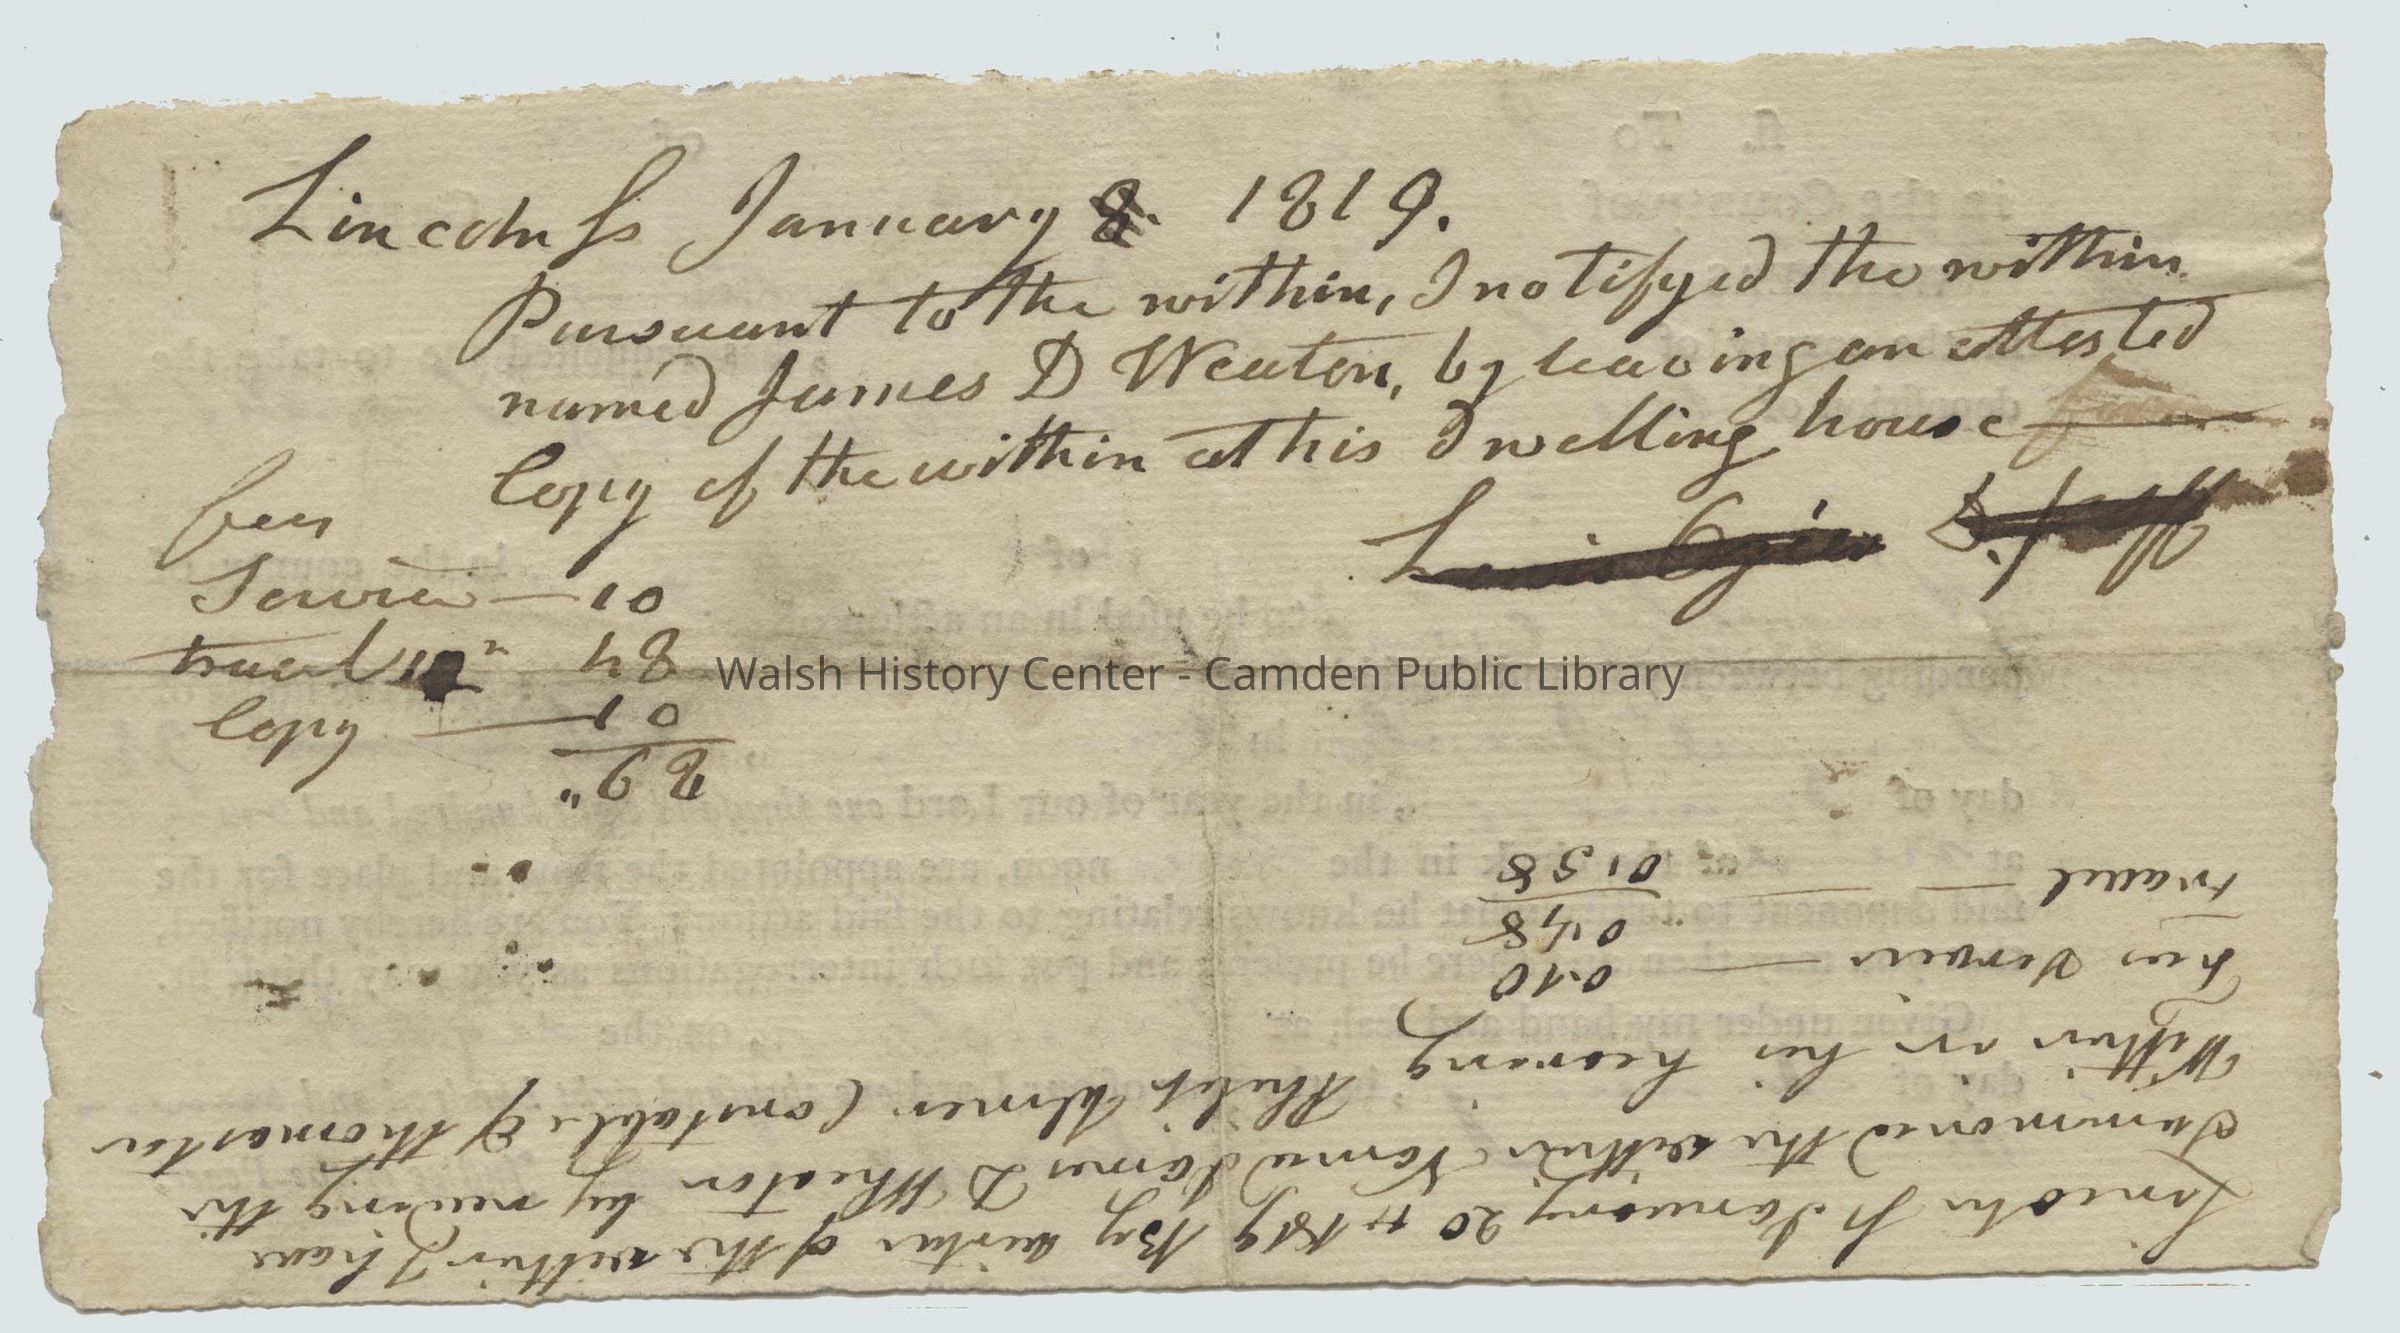 Lincoln Ss January 8. 1819.
Pursuant to the within, I notifyed the within
named James D Weaton, by leaving an attested
Copy of the within at his Dwelling house
Lewis Ogier D Shff
fees
Servia — 10
travel " 84
Copy — 01
89"
Walsh History Center - Camden Public Library
Lincoln Ss January 20th 1819 By virtue of the within I have
Summoned the within Named James D Wheaton by reading the
Within in his hearing Philip Ulmer Constable of thomaston
Fees Servis — 0.10
travel — 0.48
0.58